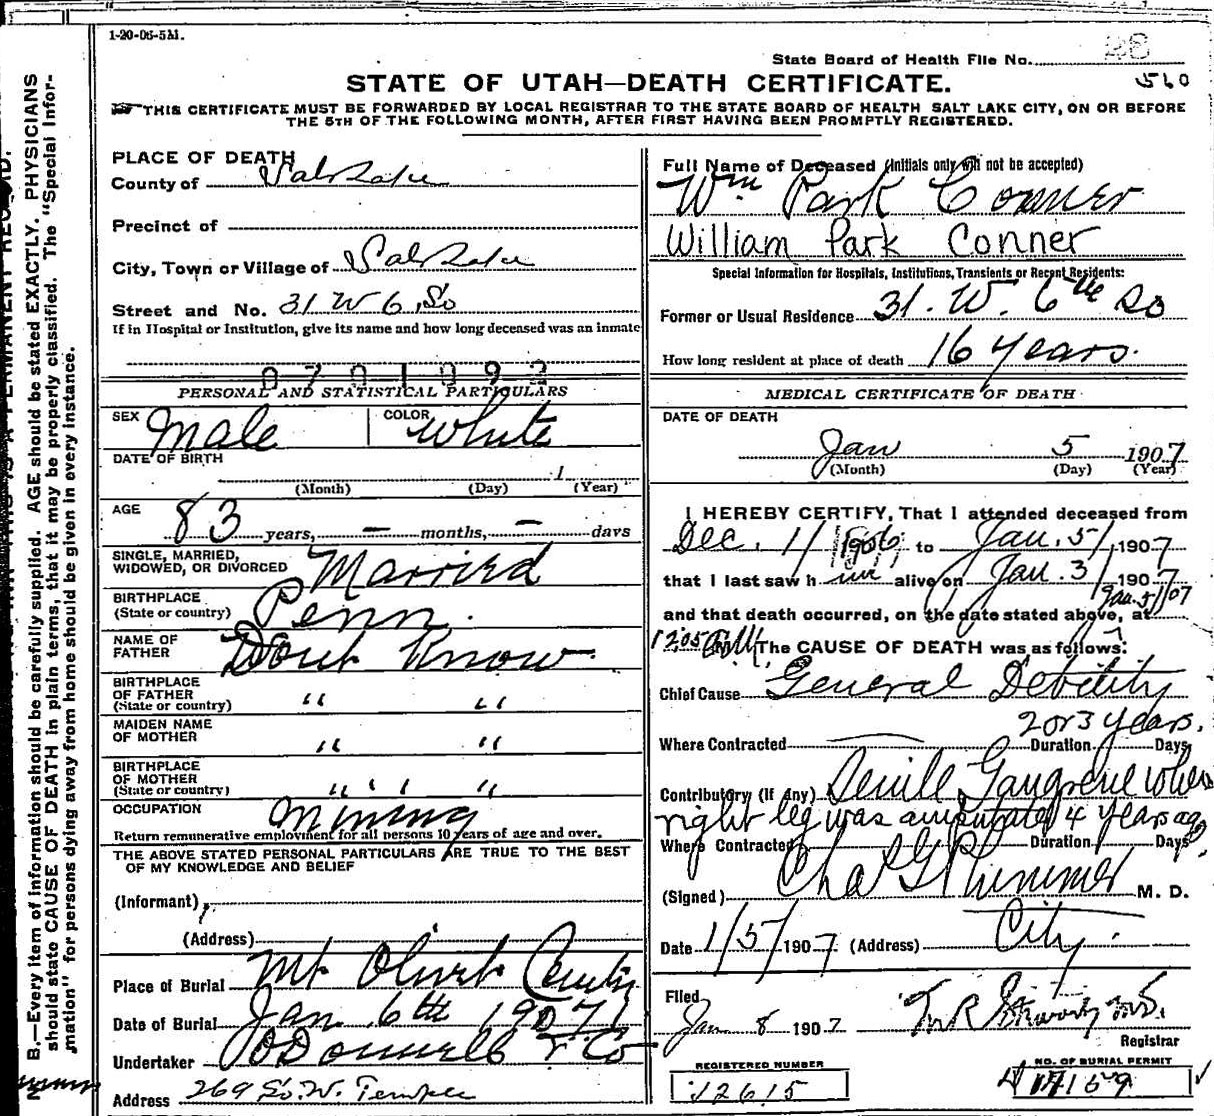 1-20-06-5M.
State Board of Health File No. 26
STATE OF UTAH—DEATH CERTIFICATE.
560
THIS CERTIFICATE MUST BE FORWARDED BY LOCAL REGISTRAR TO THE STATE BOARD OF HEALTH SALT LAKE CITY, ON OR BEFORE
THE 5TH OF THE FOLLOWING MONTH, AFTER FIRST HAVING BEEN PROMPTLY REGISTERED.
PLACE OF DEATH
County of Salt Lake
Precinct of
City, Town or Village of Salt Lake
Street and No. 31 W 6 So
If in Hospital or Institution, give its name and how long deceased was an inmate
0701092
PERSONAL AND STATISTICAL PARTICULARS
SEX Male COLOR White
DATE OF BIRTH
1
(Month) (Day) (Year)
AGE 83 years, — months, — days
SINGLE, MARRIED,
WIDOWED, OR DIVORCED Married
BIRTHPLACE
(State or country) Penn.
NAME OF
FATHER Dont Know
BIRTHPLACE
OF FATHER
(State or country) " "
MAIDEN NAME
OF MOTHER " "
BIRTHPLACE
OF MOTHER
(State or country) " " "
OCCUPATION Mining
Return remunerative employment for all persons 10 years of age and over.
THE ABOVE STATED PERSONAL PARTICULARS ARE TRUE TO THE BEST
OF MY KNOWLEDGE AND BELIEF
(Informant)
(Address)
Place of Burial Mt Olivet
Date of Burial Jan 6th 1907
Undertaker O'Donnell & Co
Address 269 So. W. Temple
Full Name of Deceased (Initials only will not be accepted)
Wm Park Conner
William Park Conner
Special Information for Hospitals, Institutions, Transients or Recent Residents:
Former or Usual Residence 31. W. 6th So
How long resident at place of death 16 years.
MEDICAL CERTIFICATE OF DEATH
DATE OF DEATH
Jan 5 1907
(Month) (Day) (Year)
I HEREBY CERTIFY, That I attended deceased from
Dec. 1/ 1906 to Jan. 5/ 1907
that I last saw him alive on Jan. 3/ 1907
Jan. 5/07
and that death occurred, on the date stated above, at
1205 M. The CAUSE OF DEATH was as follows:
Chief Cause General Debility
2 or 3 years.
Where Contracted Duration Days
Contributory (If any) Senile Gangrene when
right leg was amputated 4 years ago
Where Contracted Duration Days
(Signed) Chas G Plummer M. D.
Date 1/5/ 1907 (Address) City.
Filed
Jan 8 1907
Registrar
REGISTERED NUMBER
12615
NO. OF BURIAL PERMIT
B.—Every item of information should be carefully supplied. AGE should be stated EXACTLY. PHYSICIANS
should state CAUSE OF DEATH in plain terms, that it may be properly classified. The "Special Infor-
mation" for persons dying away from home should be given in every instance.